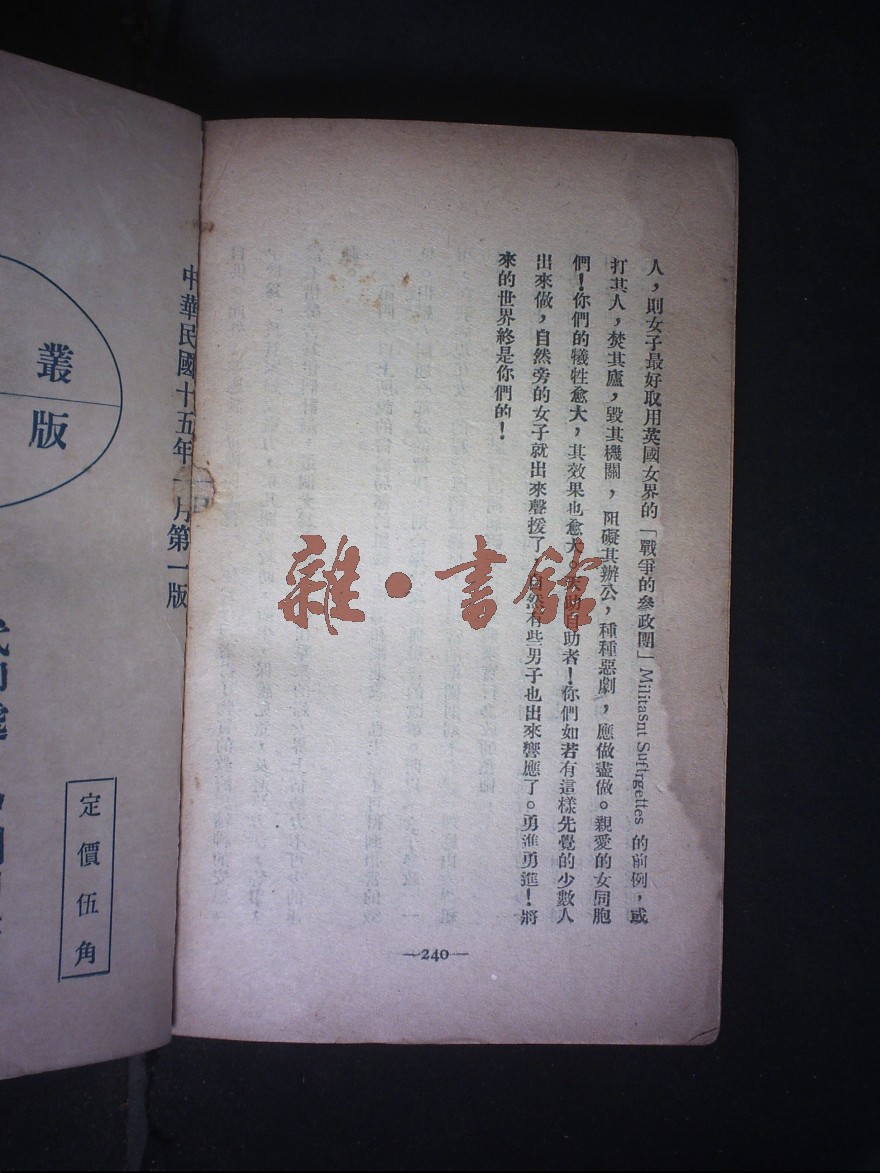 人，則女子最好取用英國女界的「戰爭的參政團」Militasnt Suftrgettes 的前例，或
打其人，焚其廬，毀其機關，阻礙其辦公，種種惡劇，應做盡做。親愛的女同胞
們！你們的犧牲愈大，其效果也愈大。天助自助者！你們如若有這樣先覺的少數人
出來做，自然旁的女子就出來聲援了，自然有些男子也出來響應了。勇進勇進！將
來的世界終是你們的！
—240—
雜·書館
中華民國十五年一月第一版
叢
版
定價伍角